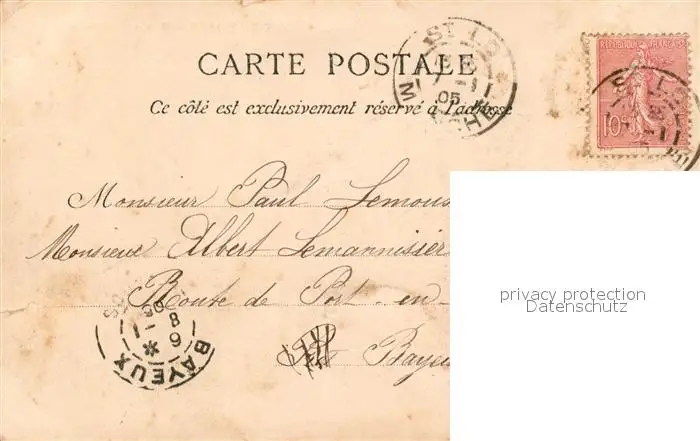 CARTE POSTALE
Ce côté est exclusivement réservé à l'adresse
REPUBLIQUE FRANÇAISE
10c
05
Monsieur Paul
Monsieur Albert Lemannissier
Route de Port-en-
BAYEUX
privacy protection
Datenschutz